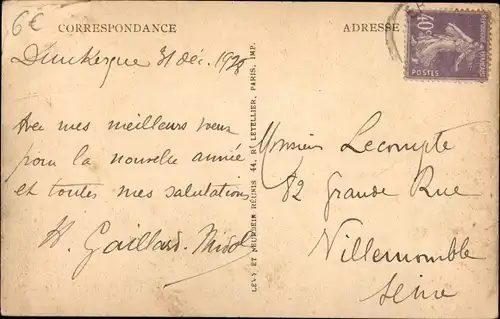 6€
CORRESPONDANCE
ADRESSE
40c
REPUBLIQUE FRANÇAISE
POSTES
Dunkerque 31 déc. 1928
Avec mes meilleurs vœux
pour la nouvelle année
et toutes mes salutations
H. Gaillard
LEVY ET NEURDEIN RÉUNIS 44, Rᵉ LETELLIER, PARIS, IMP.
Monsieur Lecompte
82 Grande Rue
Villemomble
Seine